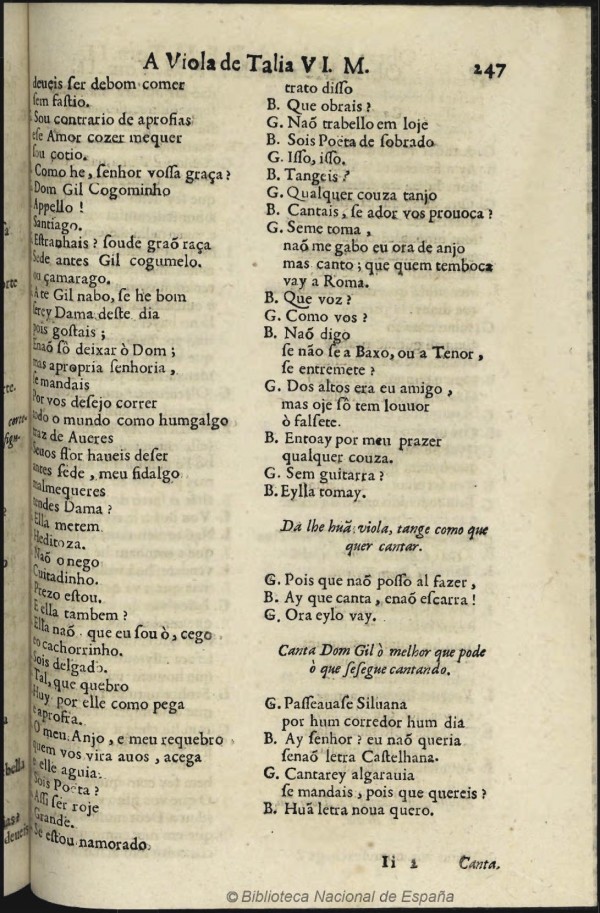 A Viola de Talia VI. M.
247
deueis ser debom comer
sem fastio.
Sou contrario de aprofias
ese Amor cozer mequer
sou cotio.
Como he, senhor vossa graça?
Dom Gil Cogominho
Appello!
Santiago.
Estranhais? soude graõ raça
Sede antes Gil cogumelo.
ou çamarago.
Ate Gil nabo, se he bom
serey Dama deste dia
pois gostais;
Enaõ sô deixar ò Dom;
mas apropria senhoria,
se mandais
Por vos desejo correr
todo o mundo como humgalgo
traz de Aueres
Seuos flor haueis deser
antes sede, meu fidalgo
malmequeres
tendes Dama?
Ella metem
Heditoza.
Naõ onego
Cuitadinho.
Prezo estou.
E ella tambem?
Ella naõ. que eu sou ò, cego
eo cachorrinho.
Sois delgado.
Tal, que quebro
Huy por elle como pega
eaprofia.
O meu Anjo, e meu requebro
quem vos vira auos, acega
e elle aguia.
Sois Poeta?
Assi ser roje
Grande.
Se estou namorado
trato disso
B. Que obrais?
G. Naõ trabello em loje
B. Sois Poeta de sobrado
G. Isso, isso.
B. Tangeis?
G. Qualquer couza tanjo
B. Cantais, se ador vos prouoca?
G. Seme toma,
naõ me gabo eu ora de anjo
mas canto; que quem temboca
vay a Roma.
B. Que voz?
G. Como vos?
B. Naõ digo
se não se a Baxo, ou a Tenor,
se entremete?
G. Dos altos era eu amigo,
mas oje sô tem louuor
ò falsete.
B. Entoay por meu prazer
qualquer couza.
G. Sem guitarra?
B. Eylla tomay.
Da lhe huã viola, tange como que
quer cantar.
G. Pois que naõ posso al fazer,
B. Ay que canta, enaõ escarra!
G. Ora eylo vay.
Canta Dom Gil ò melhor que pode
ò que sesegue cantando.
G. Passeauase Siluana
por hum corredor hum dia
B. Ay senhor? eu naõ queria
senaõ letra Castelhana.
G. Cantarey algarauia
se mandais, pois que quereis?
B. Huã letra noua quero.
Ii 2
Canta.
© Biblioteca Nacional de España